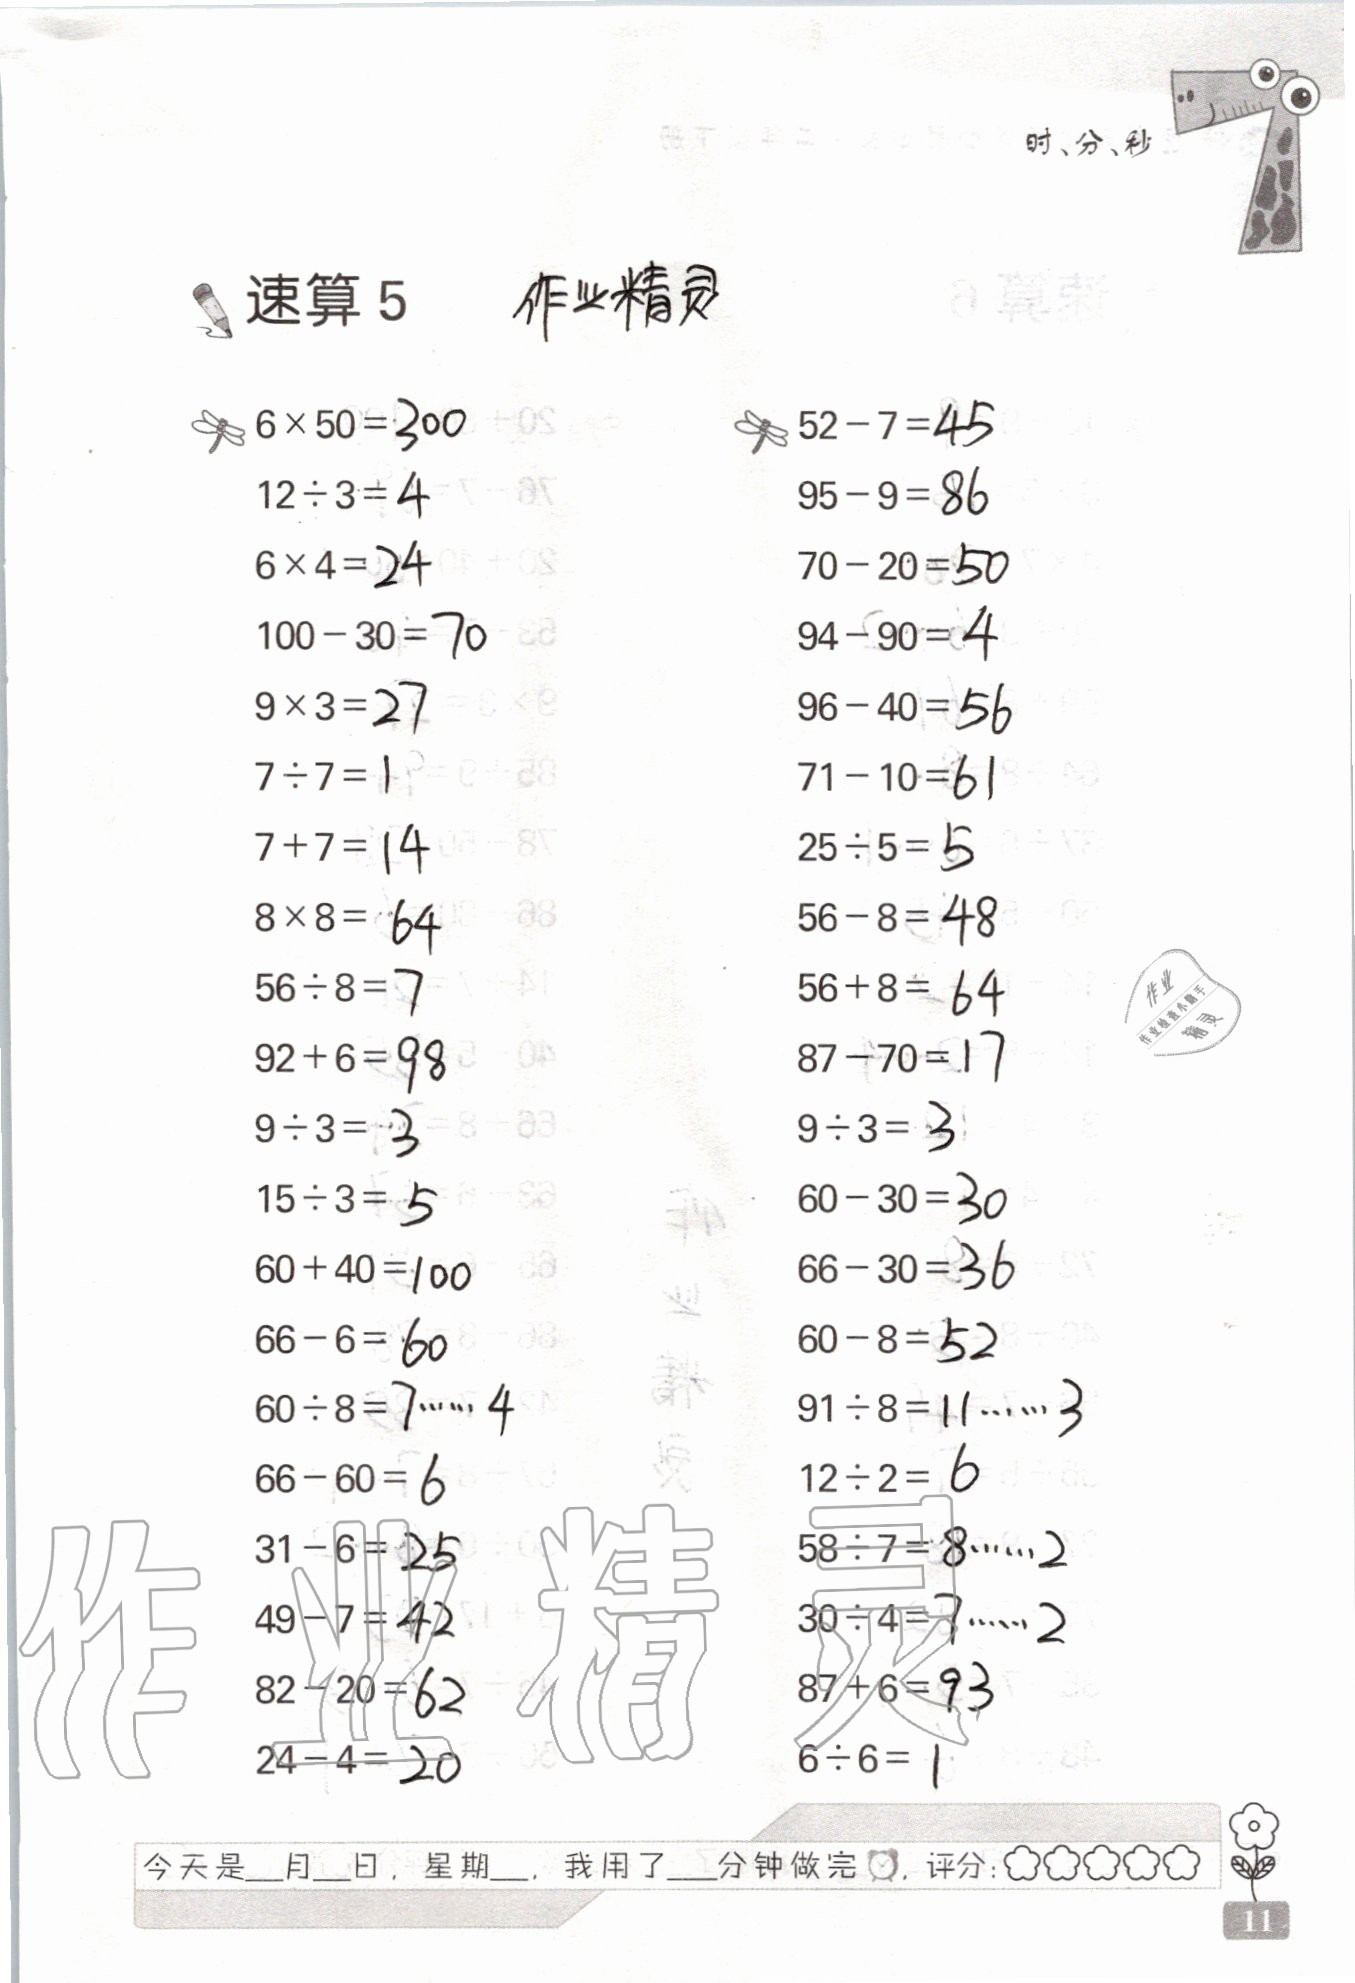 时、分、秒
速算 5 作业精灵
6×50=300
12÷3=4
6×4=24
100-30=70
9×3=27
7÷7=1
7+7=14
8×8=64
56÷8=7
92+6=98
9÷3=3
15÷3=5
60+40=100
66-6=60
60÷8=7……4
66-60=6
31-6=25
49-7=42
82-20=62
24-4=20
52-7=45
95-9=86
70-20=50
94-90=4
96-40=56
71-10=61
25÷5=5
56-8=48
56+8=64
87-70=17
9÷3=3
60-30=30
66-30=36
60-8=52
91÷8=11……3
12÷2=6
58÷7=8……2
30÷4=7……2
87+6=93
6÷6=1
作业
作业检查小助手
精灵
作业精灵
今天是__月__日，星期__，我用了___分钟做完，评分：
11